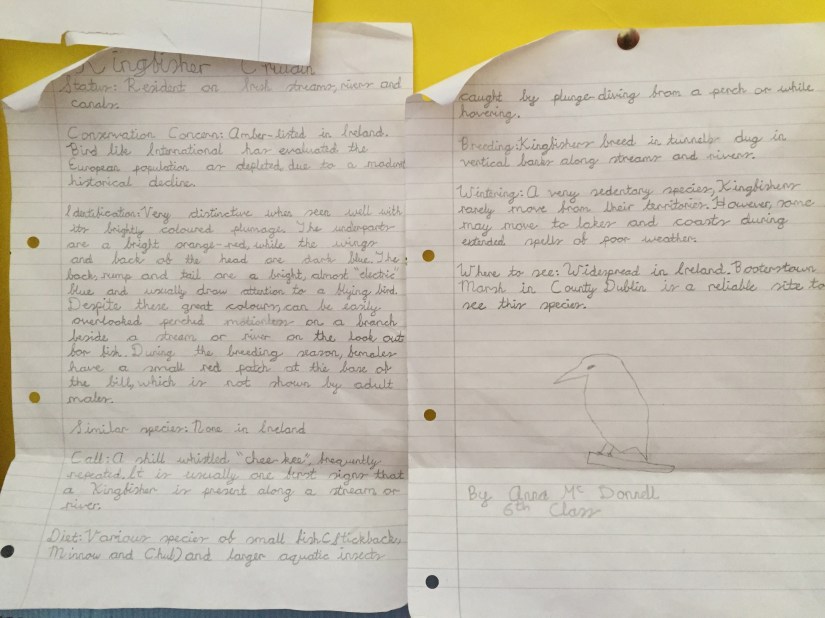 Kingfisher Cruidín
Status: Resident on Irish streams, rivers and
canals.
Conservation Concern: Amber-listed in Ireland.
Bird life International has evaluated the
European population as depleted, due to a modest
historical decline.
Identification: Very distinctive when seen well with
its brightly coloured plumage. The underparts
are a bright orange-red, while the wings
and back of the head are dark blue. The
back, rump and tail are a bright, almost "electric"
blue and usually draw attention to a flying bird.
Despite these great colours, can be easily
overlooked perched motionless on a branch
beside a stream or river on the look out
for fish. During the breeding season, females
have a small red patch at the base of
the bill, which is not shown by adult
males.
Similar species: None in Ireland
Call: A shill whistled "chee kee", frequently
repeated. It is usually one first signs that
a Kingfisher is present along a stream or
river.
Diet: Various species of small fish (Stickback,
Minnow and Chub) and larger aquatic insects
caught by plunge-diving from a perch or while
hovering.
Breeding: Kingfishers breed in tunnels dug in
vertical banks along streams and rivers.
Wintering: A very sedentary species, Kingfishers
rarely move from their territories. However, some
may move to lakes and coasts during
extended spells of poor weather.
Where to see: Widespread in Ireland. Booterstown
Marsh in County Dublin is a reliable site to
see this species.
By Anna Mc Donnell
6th Class